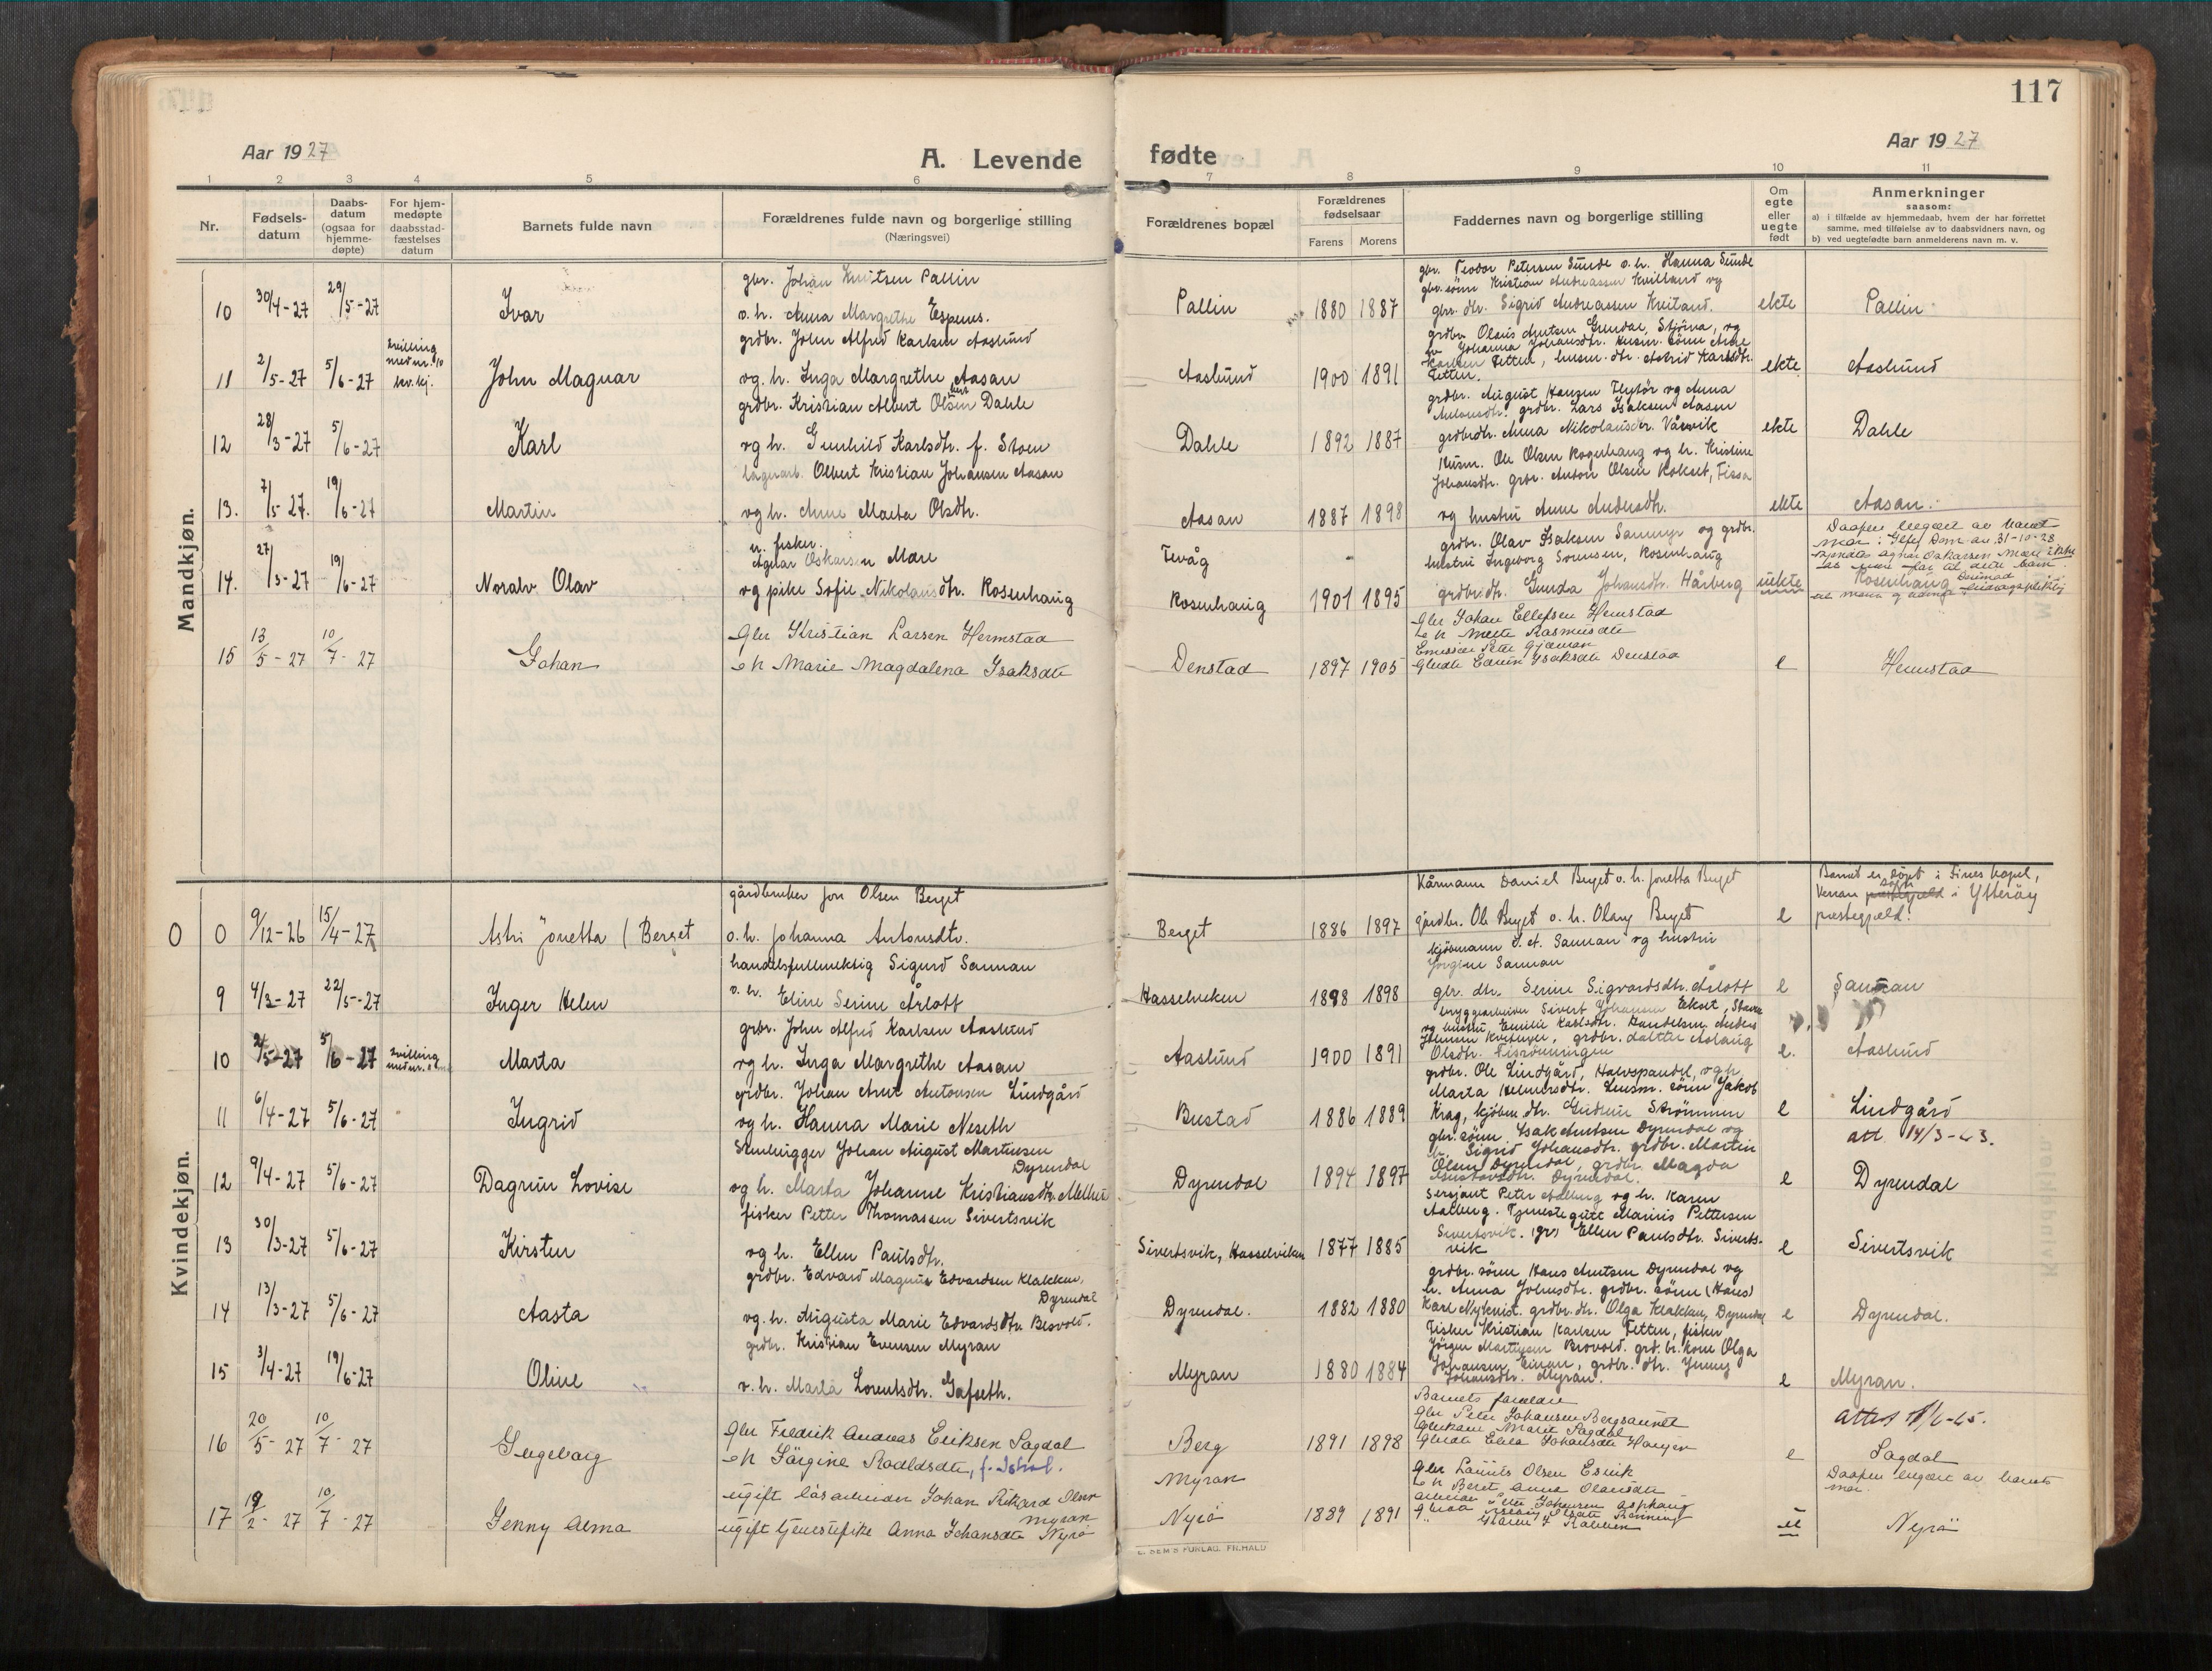 117
Aar 1927
A. Levende
fødte
Aar 1927
1 2 3 4 5 6 7 8 9 10 11
Nr.
Fødsels-
datum
Daabs-
datum
(ogsaa for
hjemme-
døpte)
For hjem-
medøpte
daabsstad-
fæstelses
datum
Barnets fulde navn
Forældrenes fulde navn og borgerlige stilling
(Næringsvei)
Forældrenes bopæl
Forældrenes
fødselsaar
Farens Morens
Faddernes navn og borgerlige stilling
Om
egte
eller
uegte
født
Anmerkninger
saasom:
a) i tilfælde av hjemmedaab, hvem der har forrettet
samme, med tilføielse av to daabsvidners navn, og
b) ved uegtefødte barn anmelderens navn m. v.
Mandkjøn.
10 30/4-27 29/5-27 Ivar
gbr. Johan Knutsen Pallin
o.h. Anna Margrethe Espnes.
Pallin 1880 1887
gbr. Teodor Petersen Sunde o.h. Hanna Sunde
gbr. sönn Kristian Andreassen og
gbr. dtr. Sigrid Andreassen
ekte Pallin
11 2/5-27 5/6-27
tvilling
med nr. 10
kv.kj.
John Magnar
grdbr. John Alfred Karlsen Aaslund
og h. Inga Margrethe Aasan
Aaslund 1900 1891
grdbr. Olaus Antsen Grendal, Stjörna, og
h. Johanna Johansdtr. husm. sönn Arne
Karlsen Fetten, husm. dtr. Astrid Karlsdtr.
Fetten.
ekte Aaslund
12 28/3-27 5/6-27 Karl
grdbr. Kristian Albert Olsen Dahle
og h. Gunhild Karlsdtr. f. Stoen
Dahle 1892 1887
grdbr. August Hansen og Anna
grdbr. Lars Isaksen Aasen
grdbrdtr. Anna Nikolausdr. Vårvik
ekte Dahle
13. 7/5-27. 19/6-27 Martin
Olbert Kristian Johansen Aasan
og h. Anne Marta Olsdtr.
Aasan 1887 1898
Husm. Ole Olsen Rogerhaug og h. Kristine
Johansdtr. grbr. Anton Olsen Kokset, Fissa
og hustru Anne Andersdtr.
ekte Aasan.
14. 27/3-27 19/6-27 Noralv Olav
u. fisker.
Agnar Oskarsen Mare
og pike Sofie Nikolausdtr. Rosenhaug
Tevåg
Rosenhaug 1901 1895
grdbr. Olav Isaksen og grdbr.
hustru Ingeborg Sorensen, Rosenhaug
grdbrdtr. Gunda Johansdtr. Hårberg
uekte
Daapen begjært av barnets
mor. Dom av 31-10-28
Agnar Oskarsen Mare ikke
far til dette barn.
Rosenhaug
15 13/5-27 10/7-27 Johan
Gbr Kristian Larsen Hermstad
e h Marie Magdalena Isaksdtr
Denstad 1897 1905
Gbr Johan Ellefsen Hemstad
e h Mette Rasmusdtr
Peter Gjelman
Gbrdtr Edvin Isaksdtr Denstad
e Hemstad
Kvindekjøn.
0 0 9/12-26 15/4-27 Astri Jonetta (Berget
gårdbruker Jon Olsen Berget
o.h. Johanna Antonsdtr.
Berget 1886 1897
Kårmann Daniel Berget o.h. Jonetta Berget
gårdbr. Ole Berget o.h. Olary Berget
e
Barnet er döpt i kapel,
Verran sogn i Ytteröy
prestegjeld.
9 4/3-27 22/5-27 Inger Helen
handelsfullmektig Sigurd Sannan
o.h. Eline Serine Årlott
Hasselviken 1898 1898
kjöbmann O. A. Sannan og hustru
Jörgine Sannan
gbr. dtr. Serine Sigvardsdtr. Årlott
e Sannan
10 2/5-27 5/6-27
tvilling
med nr.
Marta
grbr. John Alfred Karlsen Aaslund
og h. Inga Margrethe Aasan
Aaslund 1900 1891
bryggearbeider Sivert Johansen Ekset,
og hustru Emilie Karlsdtr. Handelsm. Anders
grdbr. datter Aslaug
Olsdtr.
e. Aaslund
11 6/4-27 5/6-27 Ingrid
grdbr. Johan Arnt Antonsen Lindgård
og h. Hanna Marie Neseth
Bustad 1886 1889
grdbr. Ole Lindgård, og h.
Marta Helmersdtr. Lensm. sönn Jakob
Krag, kjöbm. dtr. Gudrun Strömmen
e Lindgård
att. 14/3-43.
12 9/4-27 5/6-27 Dagrun Lovise
Stenhugger Johan August Martinsen
Dyrendal
og h. Marta Johanne Kristiansdtr. Melhus
Dyrendal 1894 1897
gbr. sönn Isak Antsen Dyrendal og
h. Sigrid Johansdtr. grdbr. Martin
Olsen Dyrendal, grdbr. Magda
Gustavsdtr. Dyrendal.
e Dyrendal
13 30/3-27 5/6-27 Kirsten
fisker Petter Thomassen Sivertsvik
og h. Ellen Paulsdtr.
Sivertsvik, Hasselviken 1877 1885
Sersjant Peter Aalberg og h. Karen
Aalberg. Tjenestegutt Marius Pettersen
Sivertsvik. Ellen Paulsdtr. Siverts-
vik
e Sivertsvik
14 13/3-27 5/6-27 Aasta
grdbr. Edvard Magnus Edvardsen Klakken,
Dyrendal
og h. Augusta Marie Edvardsdtr. Besvold.
Dyrendal. 1882 1880
grdbr. sönn Hans Antsen Dyrendal og
h. Anna Johnsdtr. grdbr. sönn (Hans)
Karl Nykvist. grdbr. dtr. Olga Klakken, Dyrendal
e Dyrendal.
15 3/4-27 19/6-27 Oline
grdbr. Kristian Evensen Myran
o.h. Marta Lorentsdtr. Gafseth.
Myran 1880 1884
Fisker Kristian Karlsen Fetten, fisker
Jörgen Martinsen Brovold. grd.br. kone Olga
Johansen Einan, grdbr. dtr. Jenny
Johansdtr. Myran.
e Myran.
16 20/5-27 10/7-27 Ingeborg
Gbr Fredrik Andreas Eriksen Sagdal
e h Jörgine Roaldsdtr,
Berg 1891 1898
Barnets forældre
Gbr Peter Johansen Bergsaunet
Gbrkone Marit Sagdal
Gbrdtr Elida Johansdtr
e Sagdal
17 19/2-27 10/7-27 Jenny Alma
ugift Johan Rikard Olsen
Myran
ugift tjenestepike Anna Johansdtr Nyrö
Myran
Nyrö 1889 1891
Gbr Laurits Olsen
e h Beret Anna Olausdtr
Arbeider Peter Johansen Asphaug
u
Daapen begjært av barnets
mor.
Nyrö
E. SEM'S FORLAG. FR.HALD